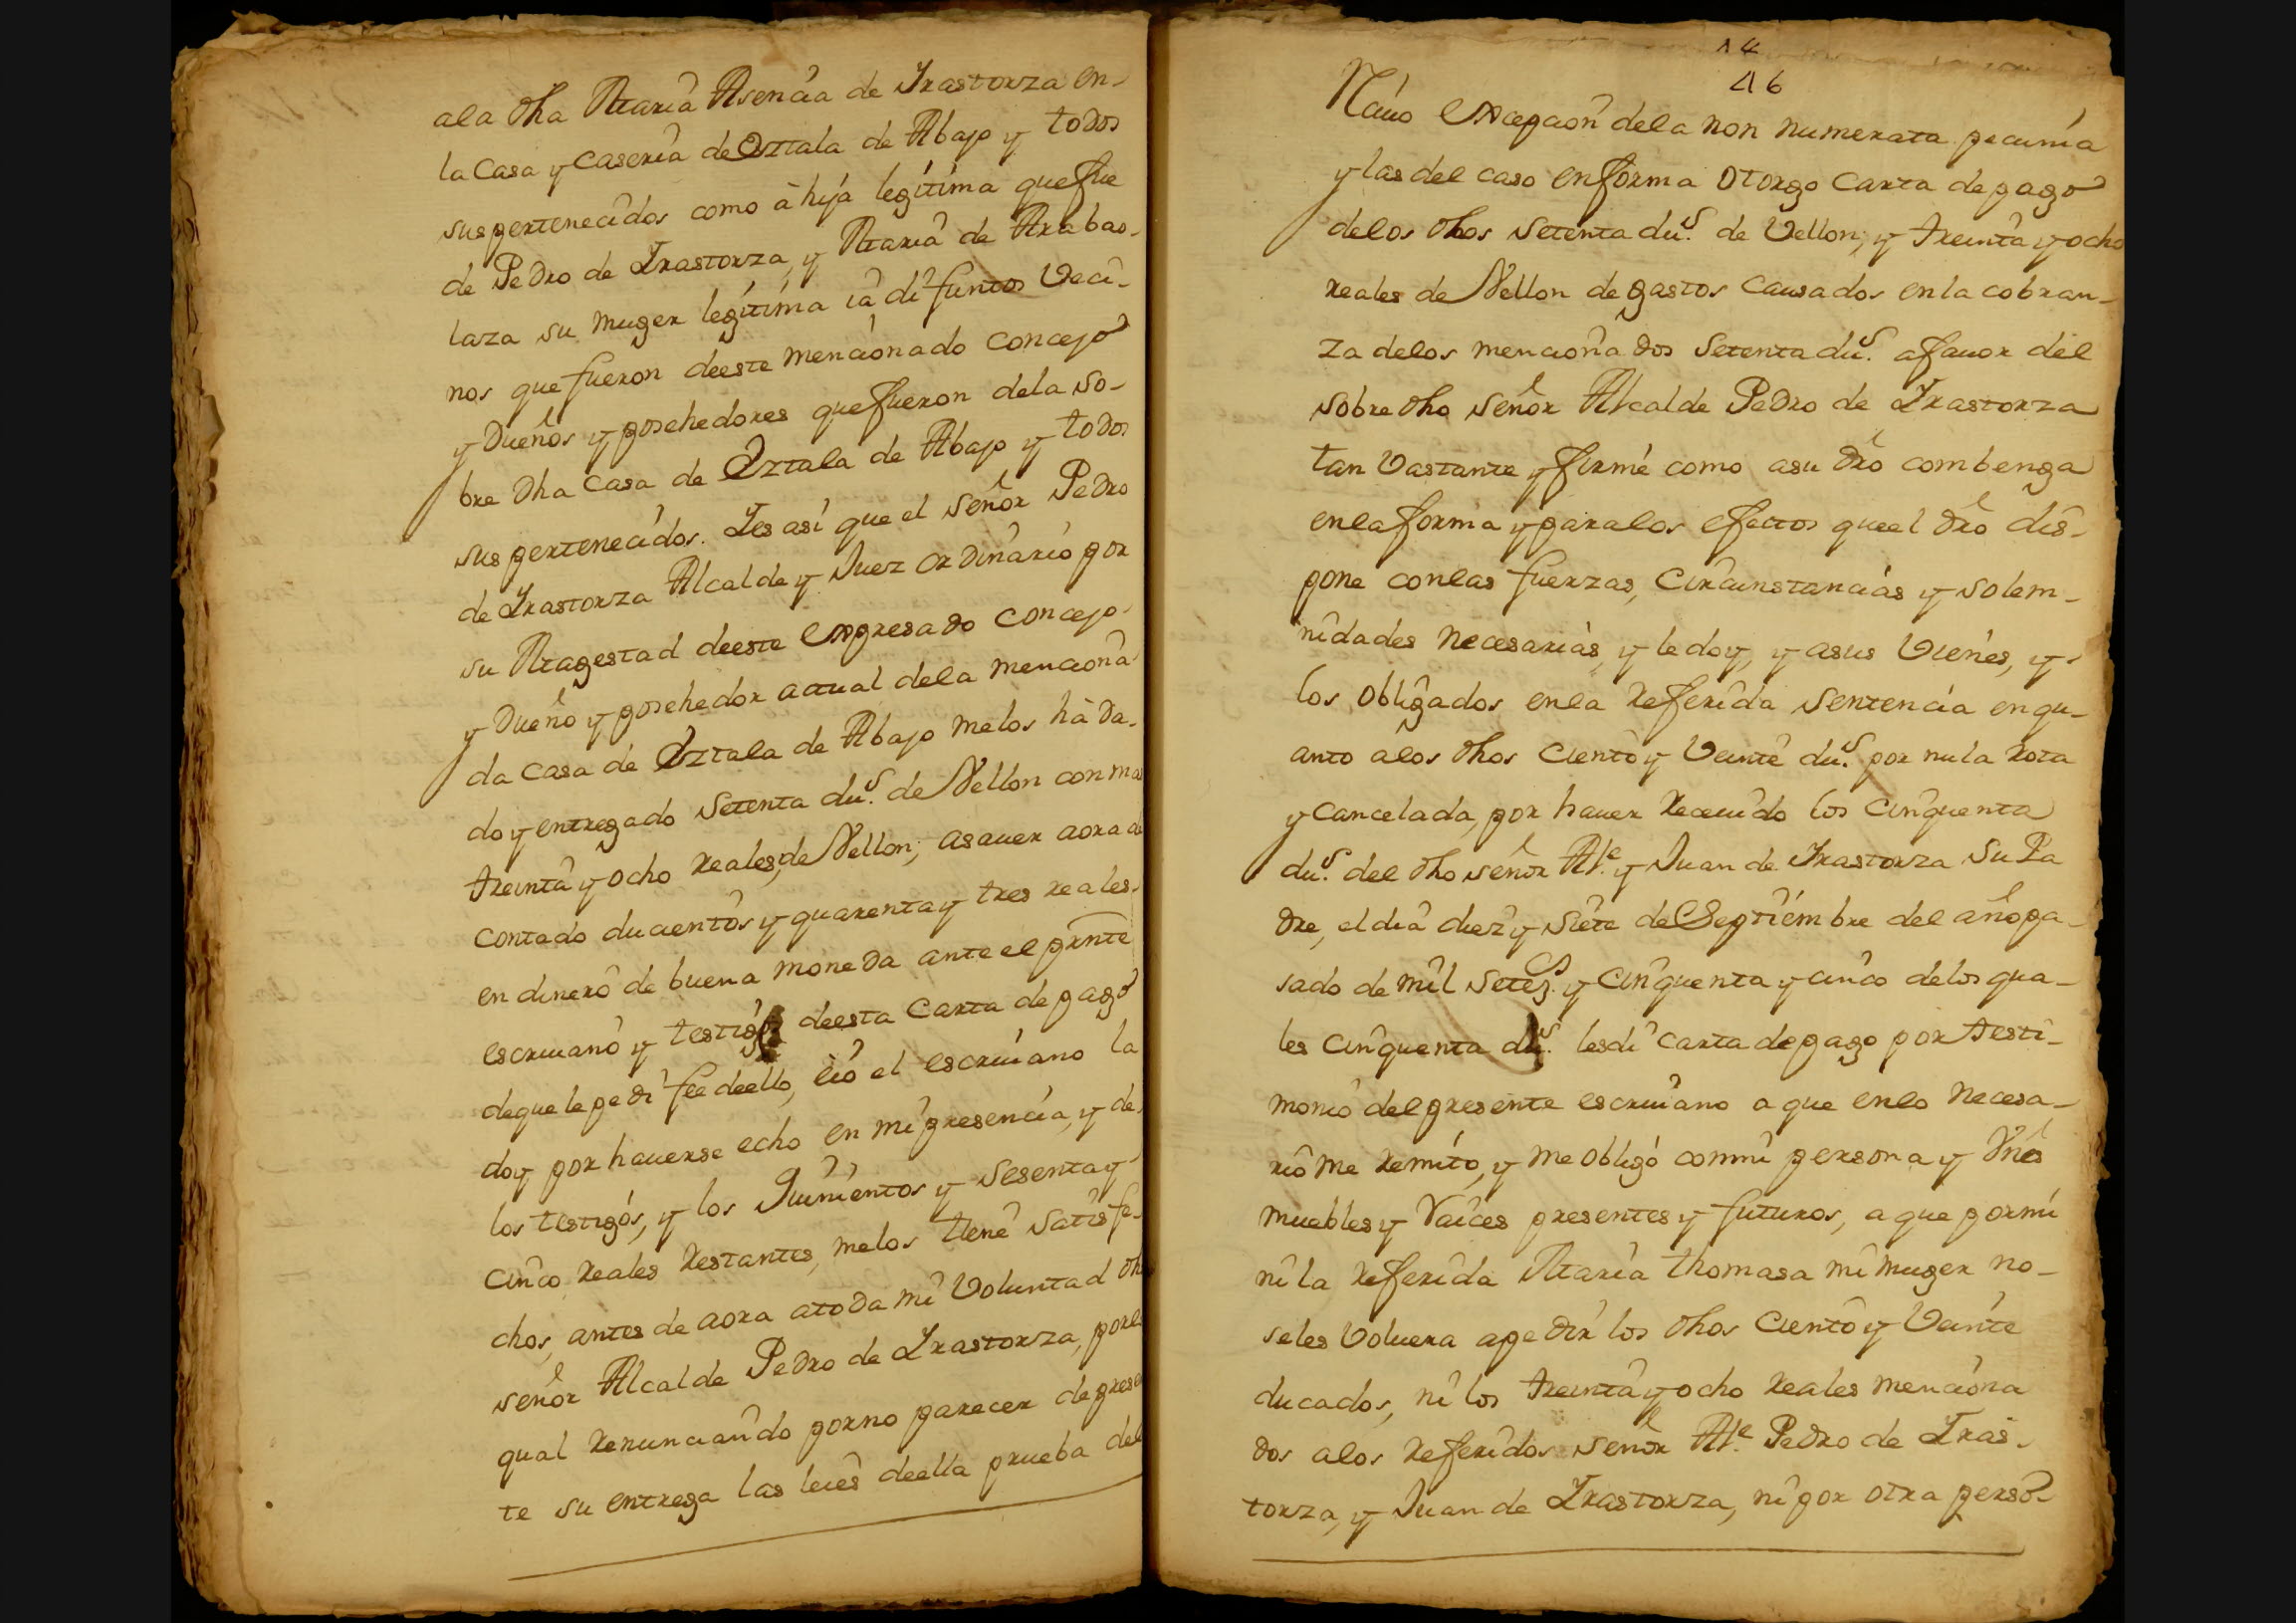 ala dha Maria Asencia de Irastorza en-
la Casa y Caseria de Oztala de Abajo y todos
sus pertenecidos como à hija legitima que fue
de Pedro de Irastorza, y Maria de Arabao-
laza su muger legitima ià difuntos Veci-
nos que fueron deeste mencionado Concejo
y Dueños y posehedores que fueron dela so-
bre dha Casa de Oztala de Abajo y todos
sus pertenecidos. Ies asi que el señor Pedro
de Irastorza Alcalde y Juez ordinario por
su Magestad deeste Expresado Concejo
y Dueño y posehedor actual dela menciona
da Casa de Oztala de Abajo melos hà da-
do y entregado Setenta du.s de Vellon con mas
treinta y ocho Reales, de Vellon; asauer aora de
contado ducientos y quarenta y tres reales
en dinero de buena moneda ante el pnte
escriuano y testigos deesta Carta de pago
deque le pedi fee deello, eio el escriuano la
doy por hauerse echo en mi presencia, y de
los testigos, y los Quinientos y Sesenta y
cinco Reales Restantes, melos tiene satisfe-
chos, antes de aora atoda mi Voluntad dho
señor Alcalde Pedro de Irastorza, por lo
qual Renunciando por no parecer de presen
te su entrega las leies deella prueba del
14
46
Recivo Excepcion dela non numerata pecunia
y las del caso enforma otorgo Carta de pago
delos dhos Setenta du.s de Vellon; y treinta y ocho
Reales de Vellon de gastos Causados enla cobran-
za delos mencionados Setenta du.s afauor del
sobre dho señor Alcalde Pedro de Irastorza
tan Vastante y firme como asu dro combenga
enla forma y paralos efectos queel dro dis-
pone conlas fuerzas, Circunstancias y solem-
nidades necesarias, y le doy, y asus Vienes, y
los obligados enla Referida Sentencia enqu-
anto alos dhos Ciento y Veinte du.s por nula Rota
y Cancelada, por hauer Receuido los Cinquenta
du.s del dho señor Al.e y Juan de Irastorza su Pa
dre, el dia diez y siete de Septiembre del año pa-
sado de mil setez.s y Cinquenta y cinco delos qua-
les Cinquenta du.s lesdi Carta de pago por testi-
monio del presente escriuano a que enlo necesa-
rio me Remito, y me obligo conmi persona y Vnes
muebles y Raices presentes y futuros, a que pormi
nila Referida Maria thomasa mi muger no-
seles Voluera apedir los dhos Ciento y Veinte
ducados, ni los treinta y ocho Reales menciona
dos alos Referidos señor Al.e Pedro de Iras-
torza, y Juan de Irastorza, ni por otra perso-